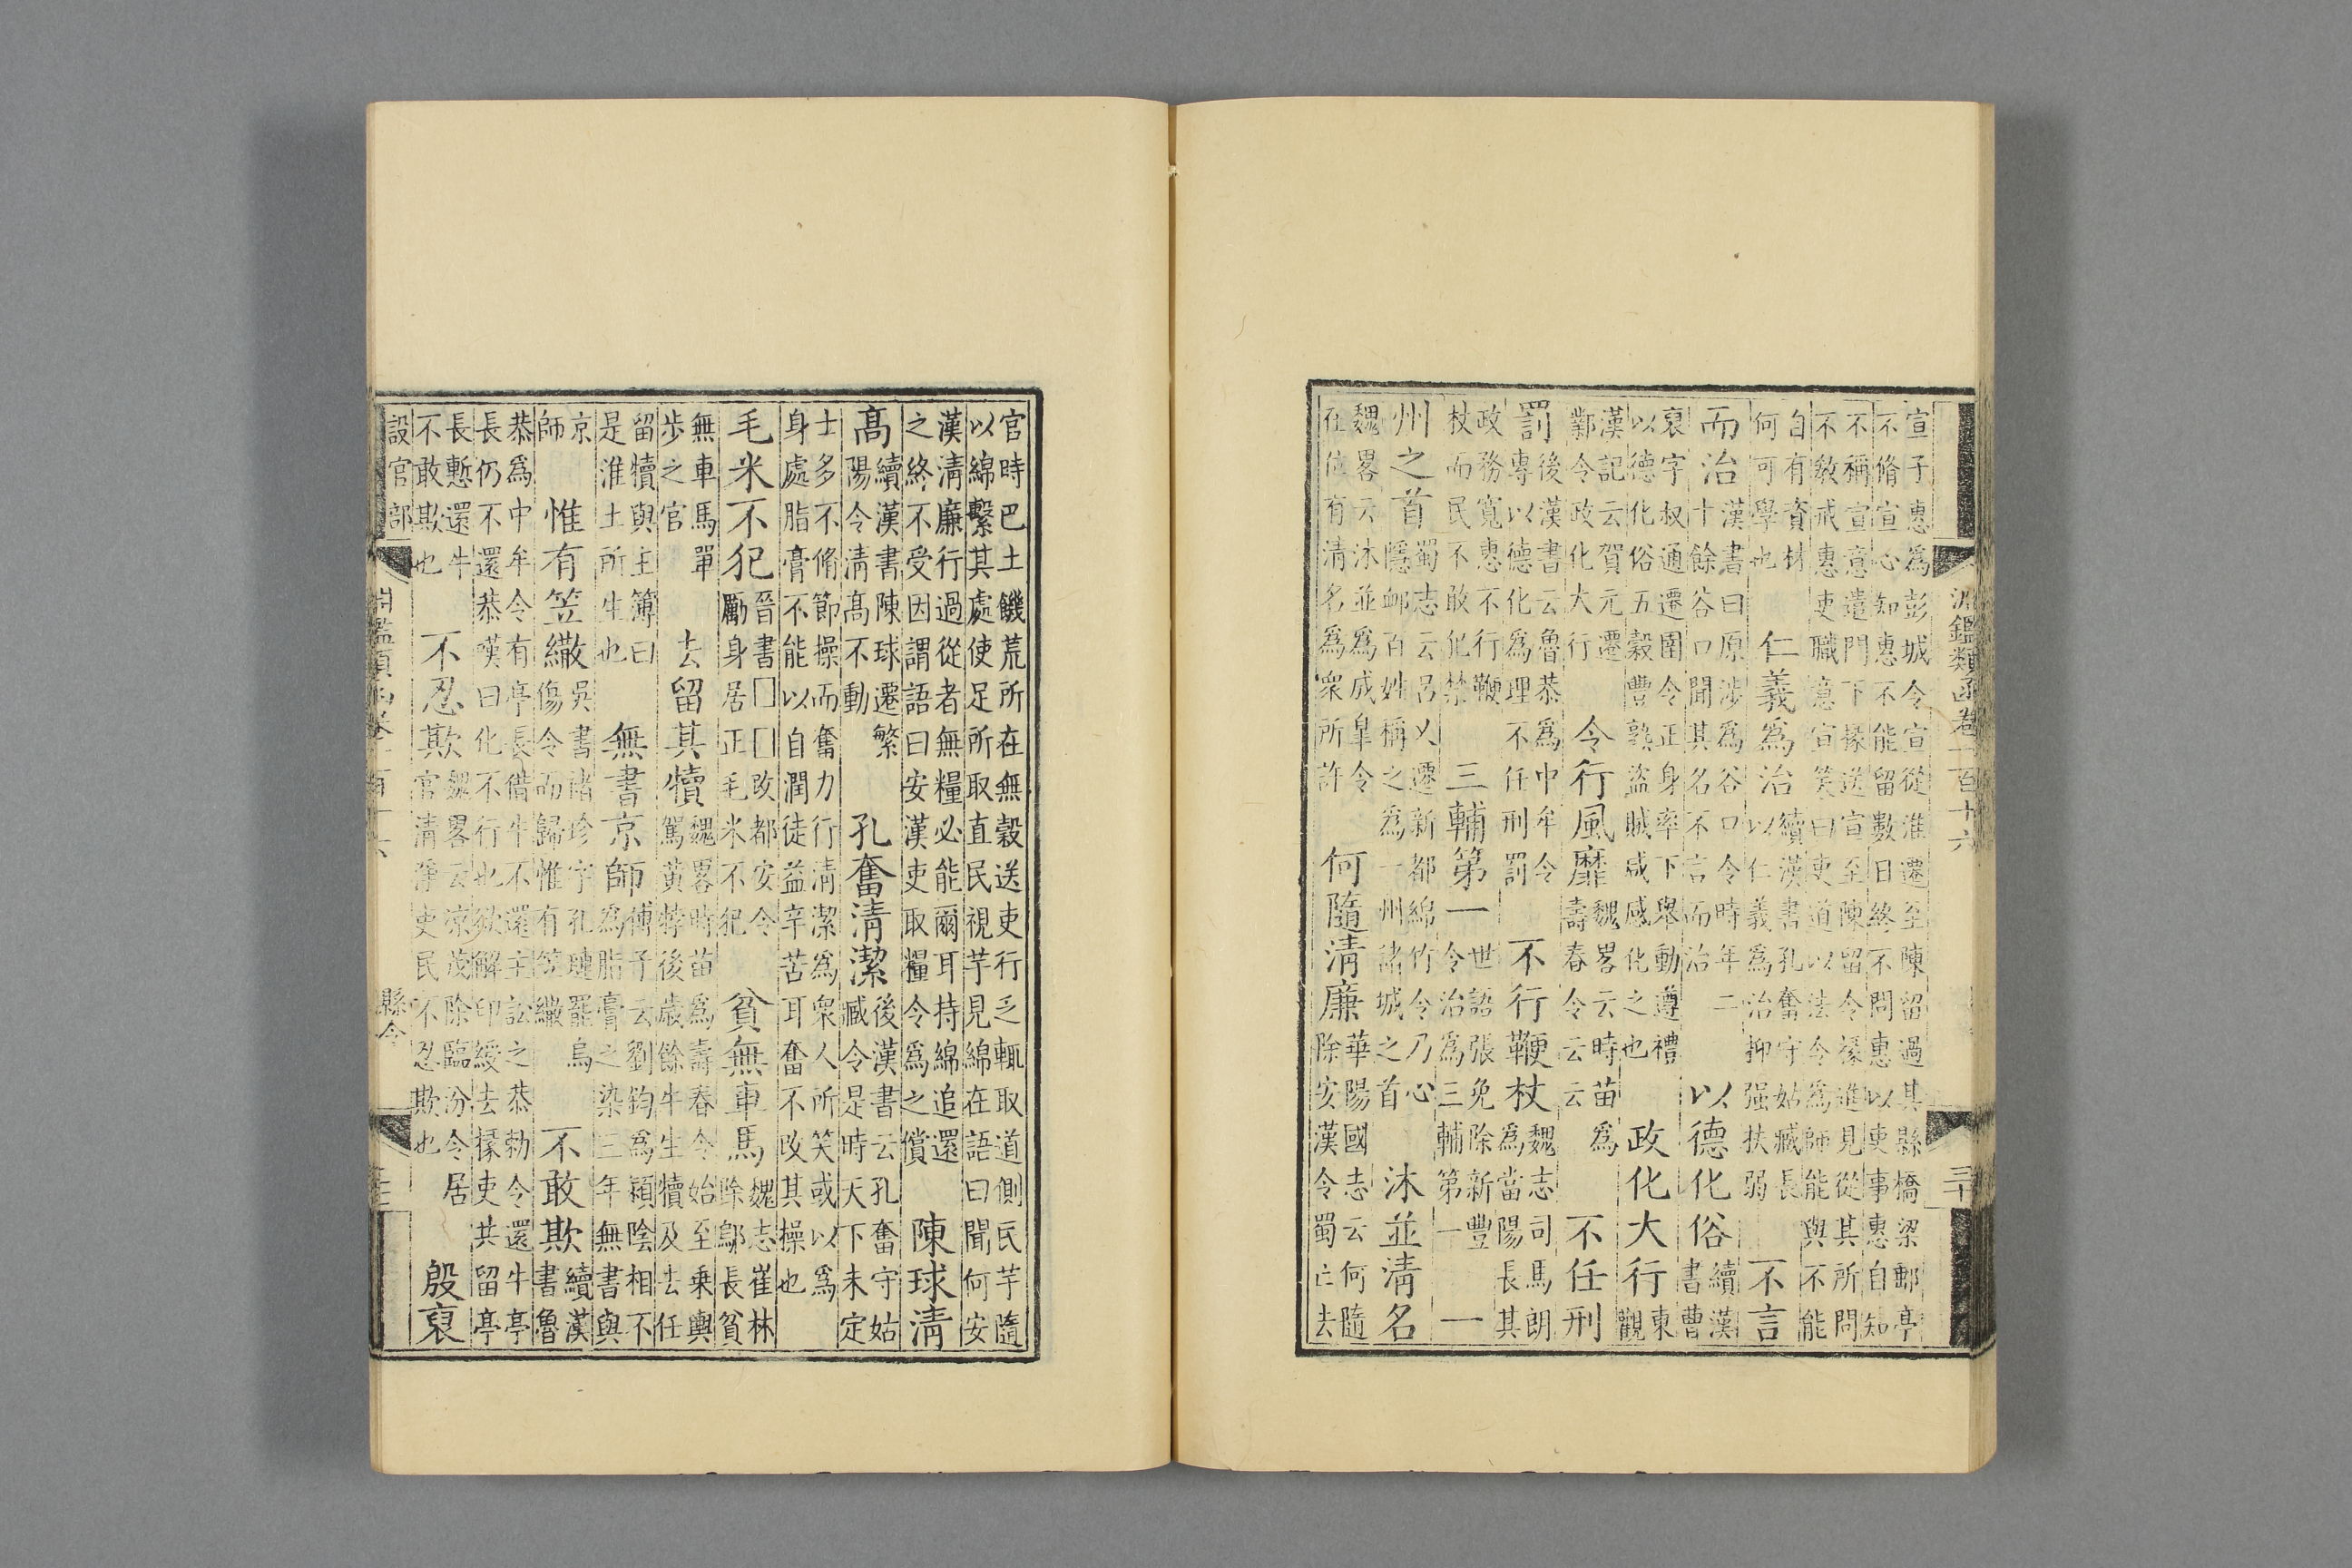 淵鑑類函卷一百十六 三十
宣子惠為彭城令宣從淮遷至陳留過其縣橋梁郵亭
不脩宣心知惠不能留數日終不問惠以吏事惠自知
不稱宣意遣門下掾送宣至陳留令掾進見從其所問
不教戒惠吏職意宣笑曰吏道以法令為師能與不能
自有資材何可學也 仁義為治 續漢書孔奮守姑臧長以仁義為治抑强扶弱 不言
而治 漢書曰原涉為谷口令時年二十餘谷口聞其名不言而治 以德化俗 續漢書曹
裒字叔通遷圉令正身率下舉動遵禮以德化俗五穀豐熟盜賊咸感化之也 政化大行 東觀
漢記云賀元遷鄴令政化大行 令行風靡 魏畧云時苗為壽春令云云 不任刑
罰 後漢書云魯恭為中牟令專以德化為理不任刑罰 不行鞭杖 魏志司馬朗為當陽長其
政務寬惠不行鞭杖而民不敢犯禁 三輔第一 世語張免除新豐令治為三輔第一 一
州之首 蜀志云呂乂遷新都綿竹令乃心隱卹百姓稱之為一州諸城之首 沐並清名
魏畧云沐並為成臯令在位有清名為衆所許 何隨清廉 華陽國志云何隨除安漢令蜀亡去
官時巴土饑荒所在無穀送吏行乏輒取道側民芋隨
以綿繫其處使足所取直民視芋見綿在語曰聞何安
漢清廉行過從者無糧必能爾耳持綿追還之終不受因謂語曰安漢吏取糧令為之償 陳球清
高 續漢書陳球遷繁陽令清高不動 孔奮清潔 後漢書云孔奮守姑臧令是時天下未定
士多不脩節操而奮力行清潔為衆人所笑或以為
身處脂膏不能以自潤徒益辛苦耳奮不改其操也
毛米不犯 晉書□□改都安令厲身居正毛米不犯 貧無車馬 魏志崔林除鄔長貧
無車馬單步之官 去留其犢 魏畧時苗為壽春令始至乘輿駕黃牸後歲餘牛生犢及去任
留犢與主簿曰是淮土所生也 無書京師 傅子云劉鈞為潁陰相不為脂膏之染三年無書與
京師 惟有笠繖 吳書諸珍字孔璉罷烏傷令而歸惟有笠繖 不敢欺 續漢書魯
恭為中牟令有亭長借牛不還主訟之恭勅令還牛亭
長仍不還恭嘆曰化不行也欲解印綬去掾吏共留亭
長慙還牛不敢欺也 不忍欺 魏畧云涼茂除臨汾令居官清靜吏民不忍欺也 殷裒
設官部 淵鑑類函卷一百十六 縣令